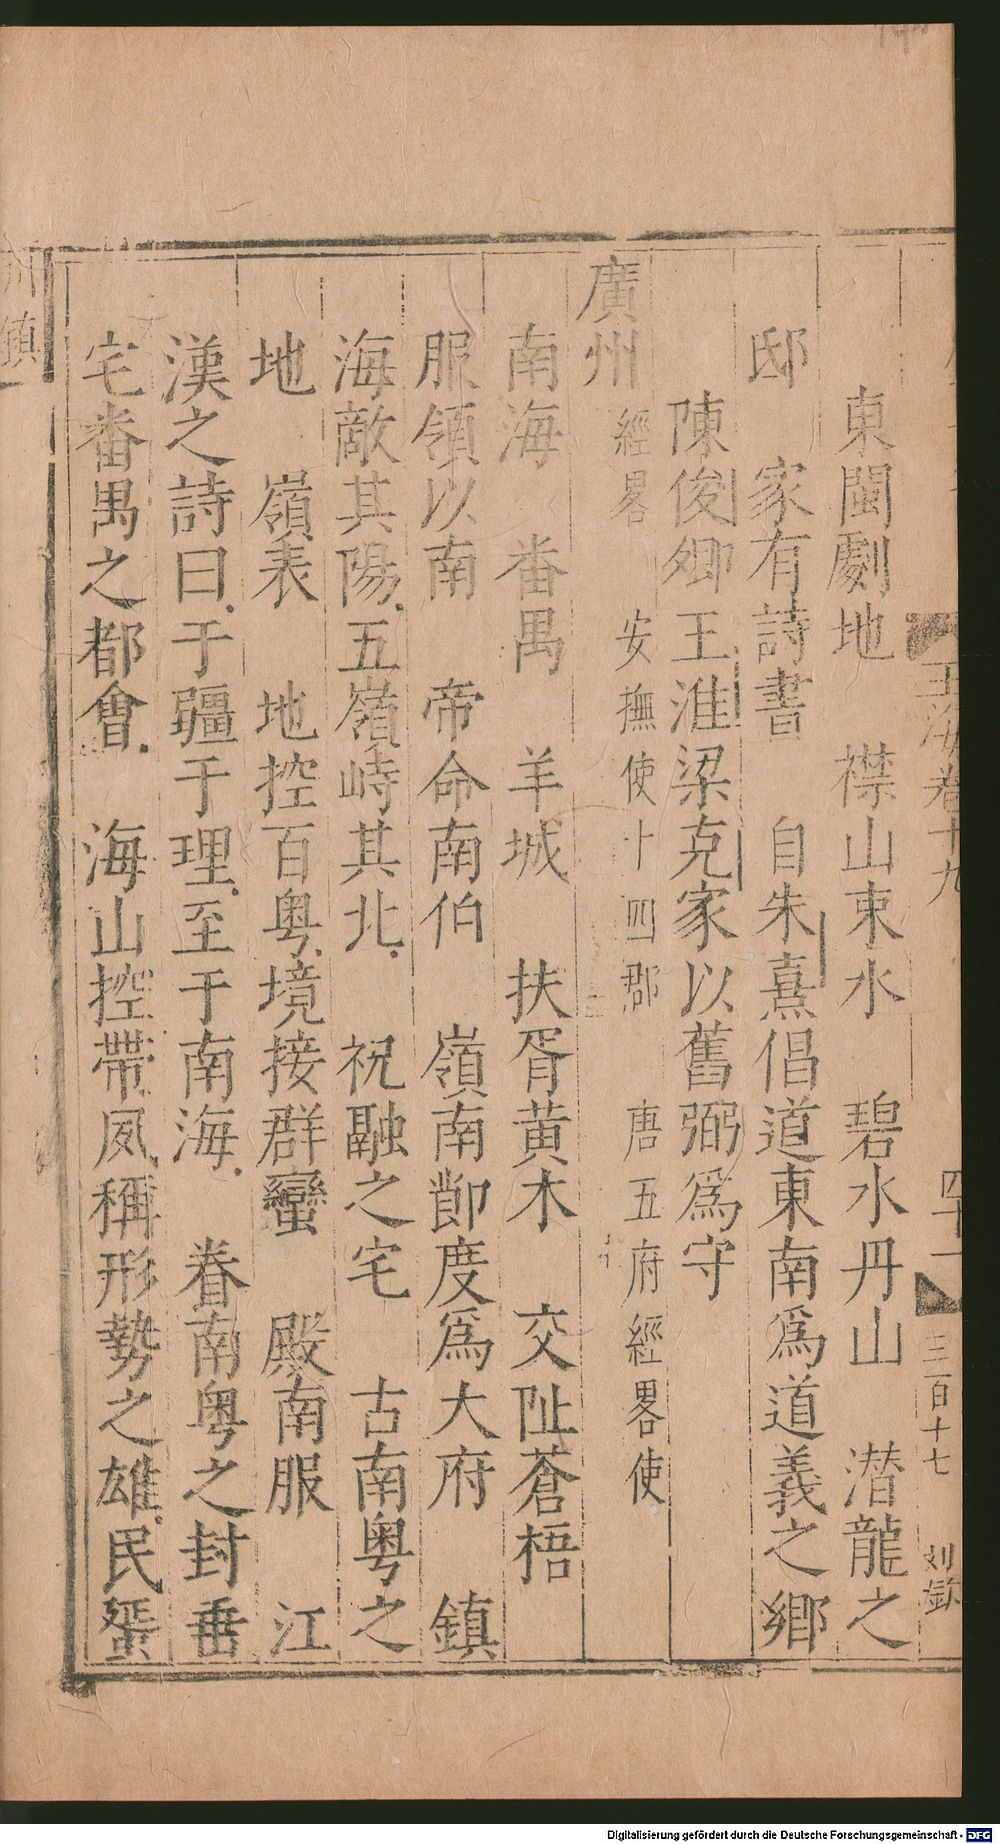 海卷十九 四十一 三百十七 刘
東閩劇地 襟山束水 碧水丹山 潛龍之
邸 家有詩書 自朱熹倡道東南爲道義之鄉
陳俊卿王淮梁克家以舊弼爲守
廣州 經畧 安撫使十四郡 唐五府經畧使
南海 番禺 羊城 扶胥黃木 交阯蒼梧
服領以南 帝命南伯 嶺南節度爲大府 鎮
海敵其陽五嶺峙其北 祝融之宅 古南粤之
地 嶺表 地控百粤境接群蠻 殿南服 江
漢之詩曰于疆于理至于南海 眷南粤之封垂
宅番禺之都會 海山控帶夙稱形勢之雄民蜑
鎮
Digitalisierung gefördert durch die Deutsche Forschungsgemeinschaft - DFG